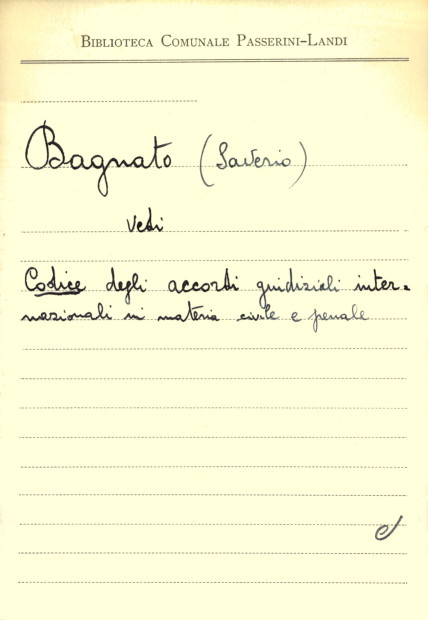 Biblioteca Comunale Passerini-Landi
Bagnato (Saverio)
Vedi
Codice degli accordi giudiziali inter-
nazionali in materia civile e penale